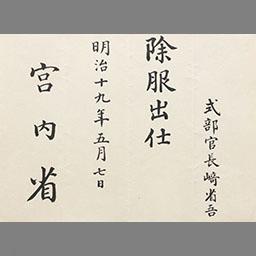 式部官長崎省吾
除服出仕
明治十九年五月七日
宮内省